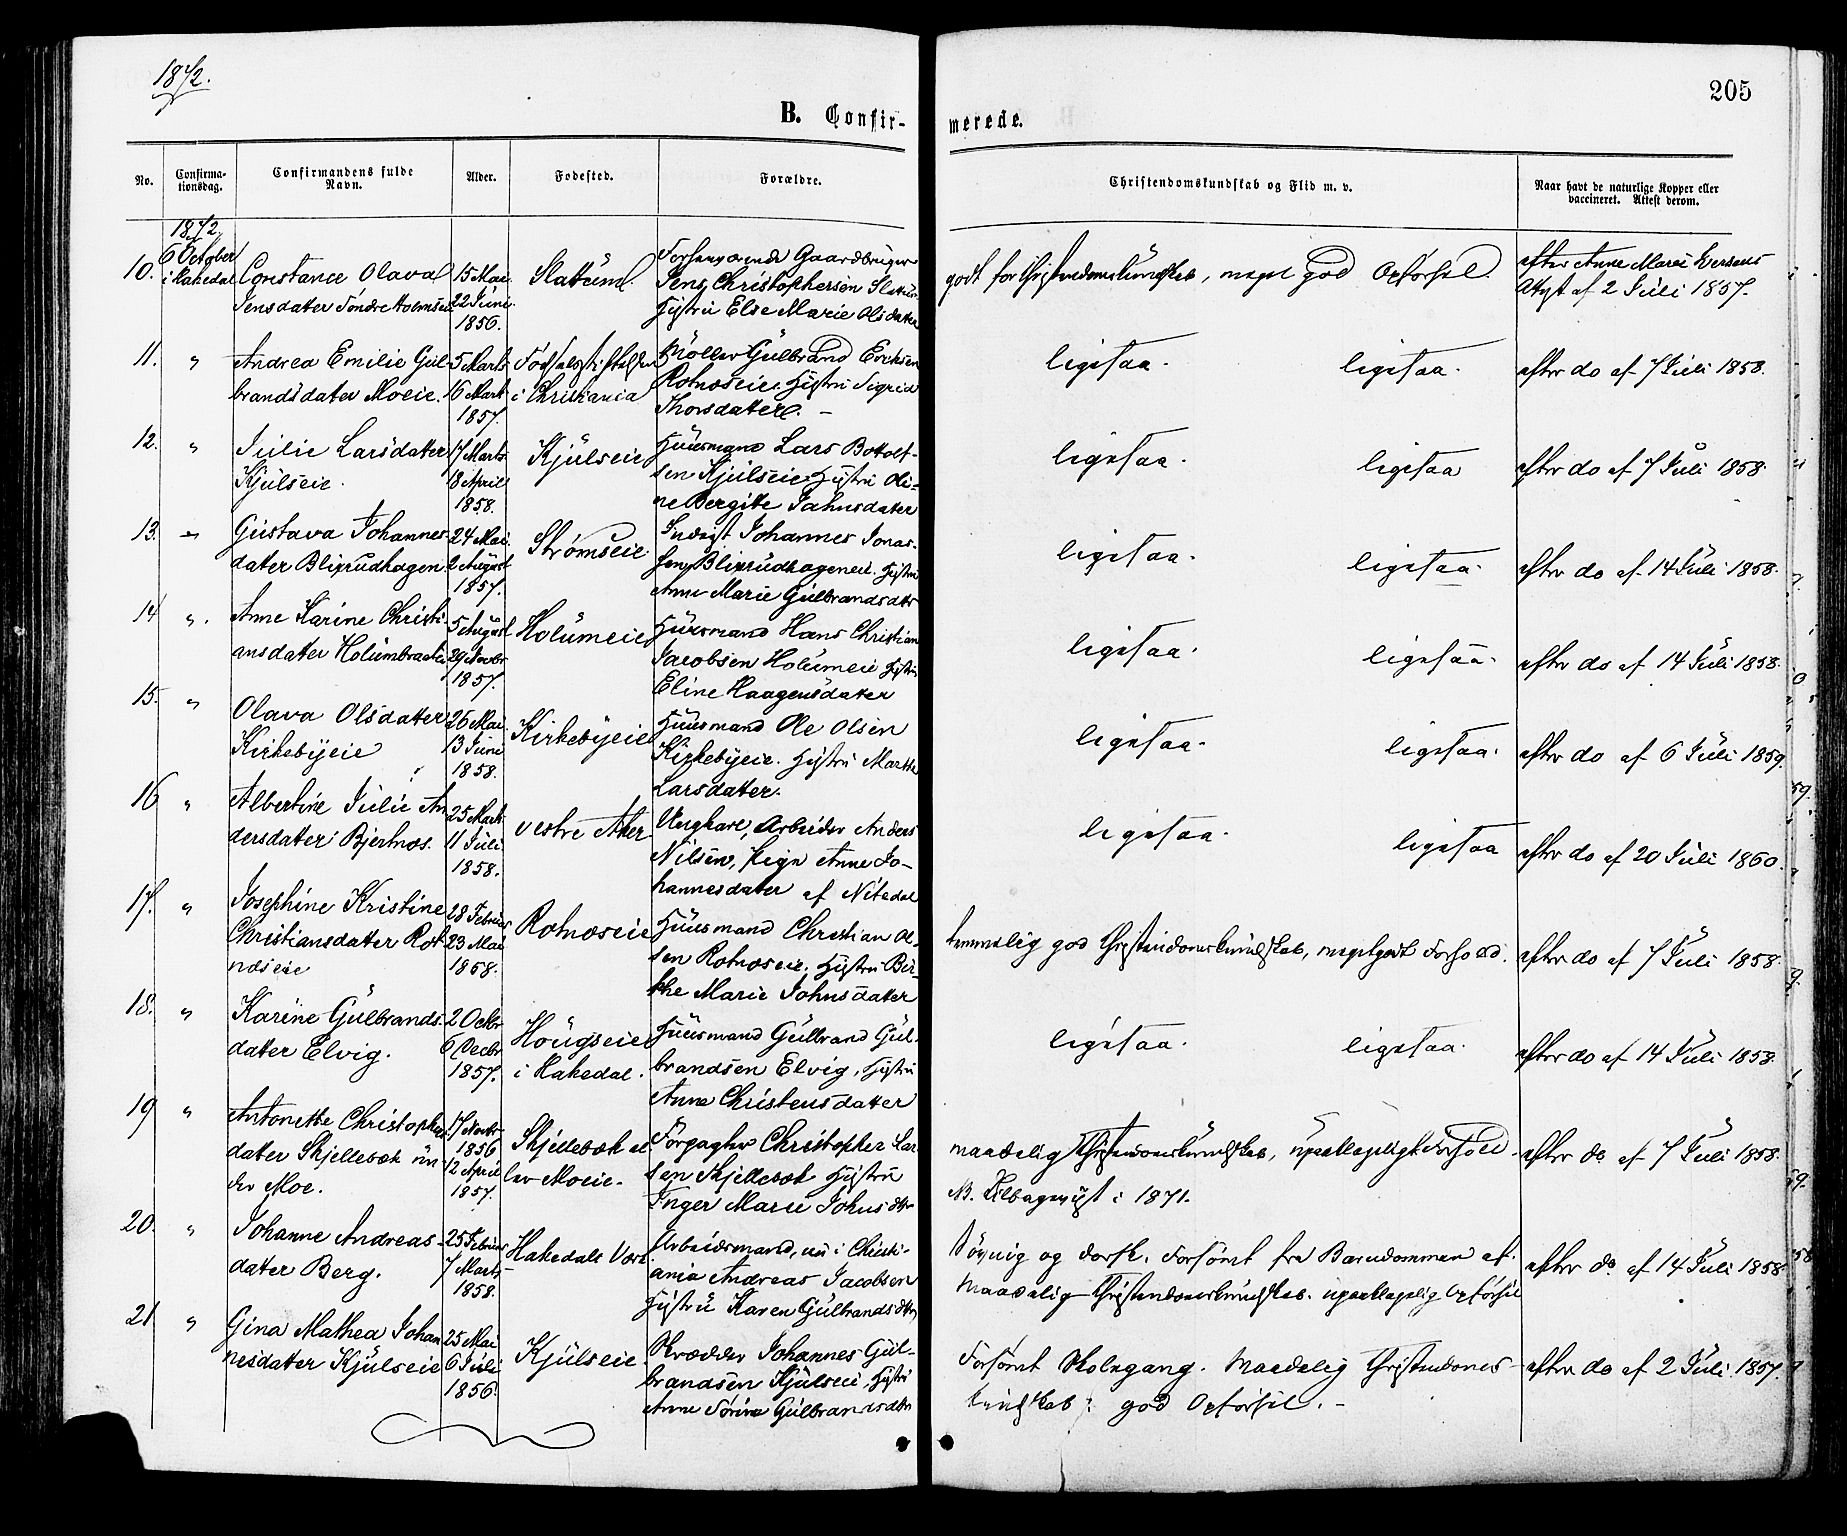 1872.
205
B. Confir-
merede.
No.
Confirma-
tionsdag.
Confirmandens fulde
Navn.
Alder.
Fødested.
Forældre.
Christendomskundskab og Flid m. v.
Naar havt de naturlige Kopper eller
vaccineret. Attest derom.
1872
6 October
i Hakedal
10.
Constance Olava
Jensdater Søndre
15 Mai
22 Juni
1856.
Slattum
Forhenværende Gaardbruger
Jens Christophersen Slattum
Hustru Else Marie Olsdatter
godt for Christendomskundskab, meget god Opførsel.
efter Anne Marie Iversens
Attest af 2 Juli 1857.
11. "
Andrea Emilie Gul-
brandsdater Moeie.
5 Marts
16 Marts
1857.
Fødselsstiftelsen
i Christiania
Møller Gulbrand Eriksen
Rotnæseie. Hustru Sigrid
Thorsdatter. -
ligesaa. ligesaa.
efter do af 7 Juli 1858.
12. "
Julie Larsdatter
Kjulseie.
17 Marts
18 April
1858.
Kjulseie
Huusmand Lars Bottolf-
sen Kjulseie. Hustru Oli-
ne Bergitte Jahnsdater
ligesaa. ligesaa
efter do af 7 Juli 1858.
13. "
Gustava Johannes-
dater Blixrudhagen
24 Mai
2 August
1857.
Strømseie
Inderst Johannes Jonas-
sen Blixrudhageneie. Hustru
Anne Marie Gulbrandsdatr
ligesaa. ligesaa.
efter do af 14 Juli 1858.
14 ".
Anne Karine Christi-
ansdater
5 August
29 Novbr
1857.
Holumeie
Huusmand Hans Christian
Jacobsen Holumeie Hustru
Eline Haagensdater
ligesaa. ligesaa.
efter do af 14 Juli 1858.
15. "
Olava Olsdatter
Kirkebyeie
26 Mai
13 Juni
1858.
Kirkebyeie
Huusmand Ole Olsen
Kirkebyeie. Hustru Marthe
Larsdater.
ligesaa. ligesaa.
efter do af 6 Juli 1859.
16 "
Albertine Julie An-
dersdater Bjertnæs.
25 Marts
11 Juli
1858.
vestre Aker
Ungkarl, Arbeider Anders
Nilsen, Pige Anne Jo-
hannesdater af Nitedal
ligesaa. ligesaa
efter do af 20 Juli 1860.
17. "
Josephine Kristine
Christiansdatter Rot-
næseie
28 Februar
23 Mai
1858.
Rotnæseie
Huusmand Christian Ol-
sen Rotnæseie. Hustru Bir-
the Marie Johnsdater
temmelig god Christendomskundskab, meget godt Forhold.
efter do af 7 Juli 1858.
18. "
Karine Gulbrands-
datter Elvig.
2 Octbr
6 Decbr
1857.
Hougseie
i Hakedal.
Huusmand Gulbrand Gul-
brandsen Elvig, Hustru
Anne Christensdatter
ligesaa. ligesaa.
efter do af 14 Juli 1858.
19 "
Antonette Christophers
dater Skjellebæk un-
der Moe.
1856
12 April
1857.
Skjellebæk el-
ler Moeie.
Christopher Lar-
sen Skjellebæk Hustru
Inger Marie Johnsdtr
maadelig Christendomskundskab, upaaklageligt Forhold.
NB. Tilbagevist i 1871.
efter do af 7 Juli 1858.
20. "
Johanne Andreas-
dater Berg.
25 Februar
7 Marts
1858.
Hakedals Værk
Arbeidsmand, nu i Christi-
ania Andreas Jacobsen
Hustru Karen Gulbrandsdtr
Søvnig og dorsk. Forsømt fra Barndommen af.
Maadelig Christendomskundskab. upaaklagelig Opførsel
efter do af 14 Juli 1858
21 "
Gina Mathea Johan-
nesdatter Kjulseie
25 Mai
6 Juli
1856.
Kjulseie
Skrædder Johannes Gul-
brandsen Kjulseie, Hustru
Anne Sørine Gulbrandsdtr
Forsømt Skolegang. Maadelig Christendoms-
kundskab; god Opførsel. -
efter do af 2 Juli 1857.